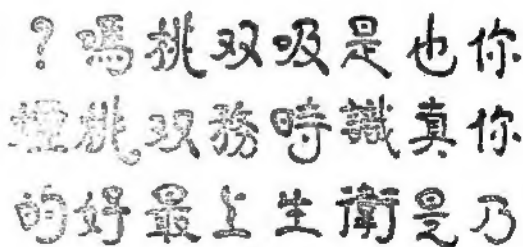 你也是吸双挑嗎?
你真識時務双挑煙
乃是衛生上最好的